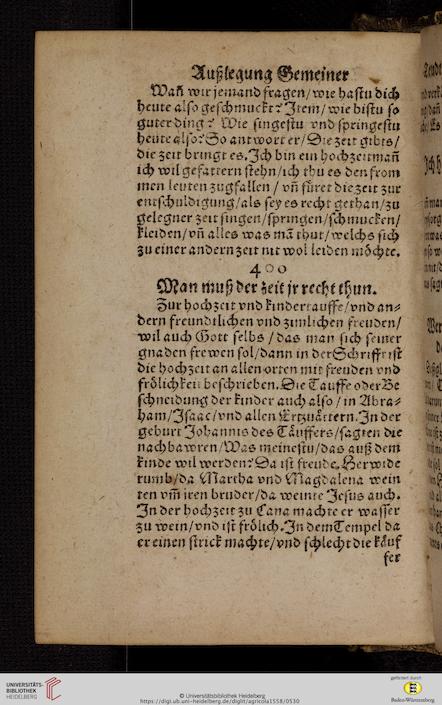 Außlegung Gemeiner
Wañ wir jemand fragen/wie hastu dich
heute also geschmuckt? Item/wie bistu so
guter ding? Wie singestu vnd springestu
heute also? So antwort er/Die zeit gibts/
die zeit bringt es. Ich bin ein hochzeitmañ
ich wil gefattern stehn/ich thu es den from
men leuten zugfallen/ vñ füret die zeit zur
entschuldigung/als sey es recht gethan/zu
gelegner zeit singen/springen/schmucken/
kleiden/vñ alles was mã thut/welchs sich
zu einer andern zeit nit wol leiden möchte.
400
Man muß der zeit jr recht thun.
Zur hochzeit vnd kindertauffe/vnd an⸗
dern freundtlichen vnd zimlichen freuden/
wil auch Gott selbs /das man sich seiner
gnaden frewen sol/dann in der Schrifft ist
die hochzeit an allen orten mit freuden vnd
frölichkeit beschrieben. Die Tauffe oder Be
schneidung der kinder auch also/in Abra⸗
ham/Isaac/vnd allen Ertzuättern. In der
geburt Johannis des Täuffers/sagten die
nachbawren/Was meinestu/das auß dem
kinde wil werden? Da ist freude. Herwide
rumb/da Martha vnd Magdalena wein
ten vm̃ iren bruder/da weinte Jesus auch.
In der hochzeit zu Cana machte er wasser
zu wein/vnd ist frölich. In dem Tempel da
er einen strick machte/vnd schlecht die käuf
fer
UNIVERSITÄTS-
BIBLIOTHEK
HEIDELBERG
© Universitätsbibliothek Heidelberg
https://digi.ub.uni-heidelberg.de/diglit/agricola1558/0530
gefördert durch
Baden-Württemberg